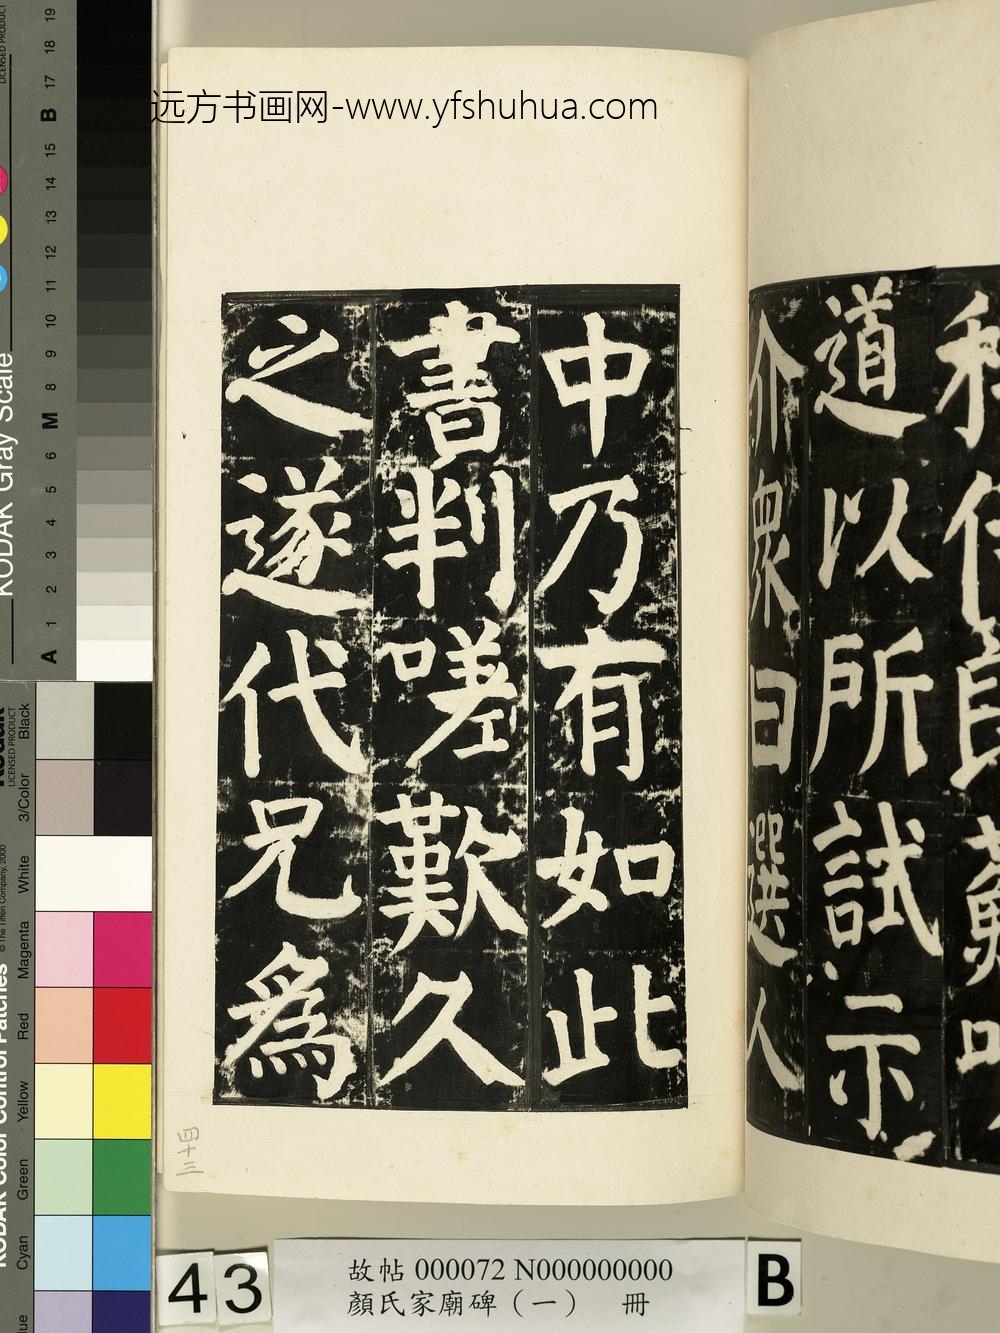 远方书画网-www.yfshuhua.com
道以所試示
介衆曰選人
中乃有如此
書判嗟歎久
之遂代兄爲
三十四
43
故帖 000072 N000000000
顏氏家廟碑（一） 冊
B
KODAK Gray Scale
LICENSED PRODUCT
A 1 2 3 4 5 6 M 8 9 10 11 12 13 14 15 B 17 18 19
KODAK Color Control Patches
© The Tiffen Company, 2000
Kodak
LICENSED PRODUCT
Cyan Green Yellow Red Magenta White 3/Color Black